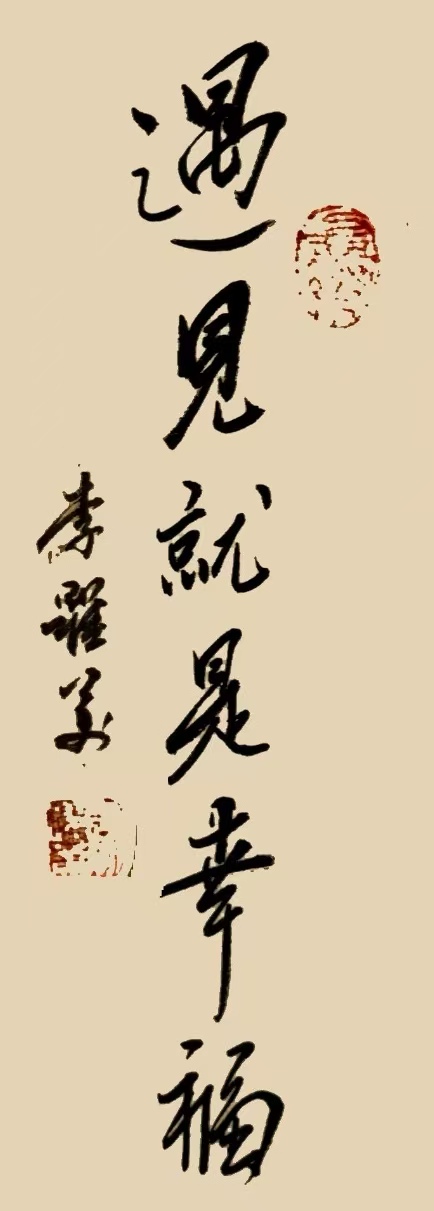 遇見就是幸福
李